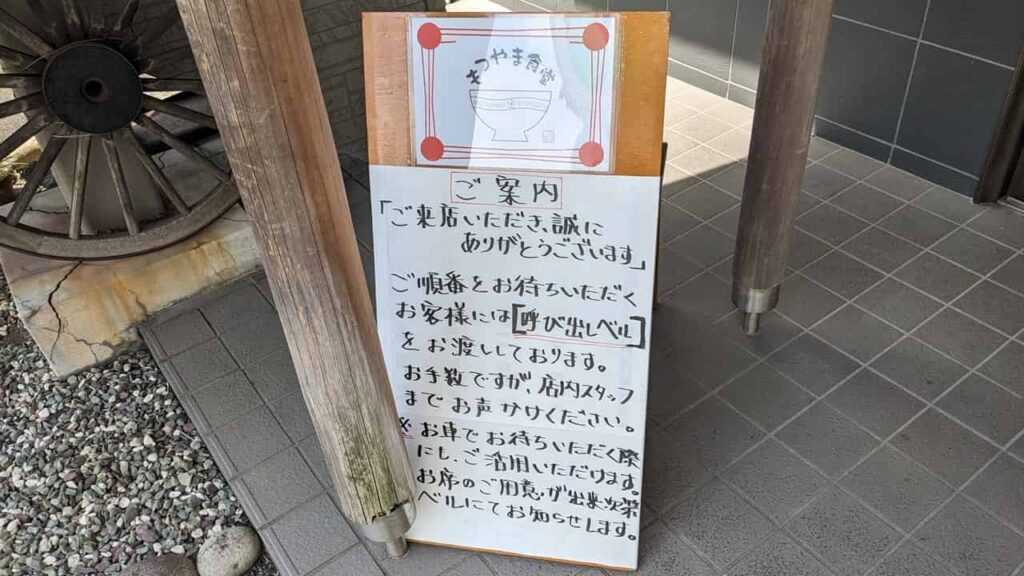 まつやま食堂
ご案内
「ご来店いただき、誠に
ありがとうございます」
ご順番をお待ちいただく
お客様には[呼び出しベル]
をお渡ししております。
お手数ですが、店内スタッフ
までお声かけください。
※お車でお待ちいただく際
にも、ご活用いただけます。
お席のご用意が出来次第
ベルにてお知らせします。